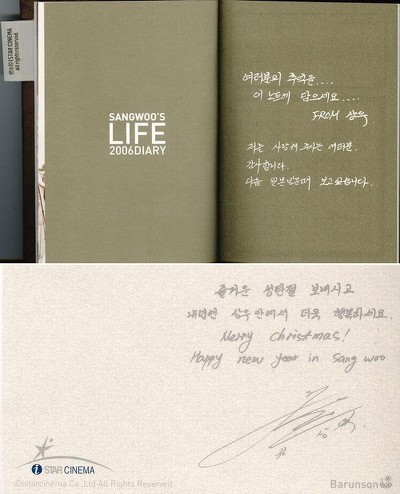 SANGWOO'S
LIFE
2006DIARY
여러분의 추억을....
이 노트에 담으세요....
FROM 상우
저를 사랑해주시는 여러분.
감사합니다.
보고싶습니다.
즐거운 성탄절 보내시고
내년엔 상우안에서 더욱 행복하세요.
Merry christmas!
Happy new year in Sang woo
iSTAR CINEMA
©istarcinema Co.,Ltd All Rights Reserved
Barunson